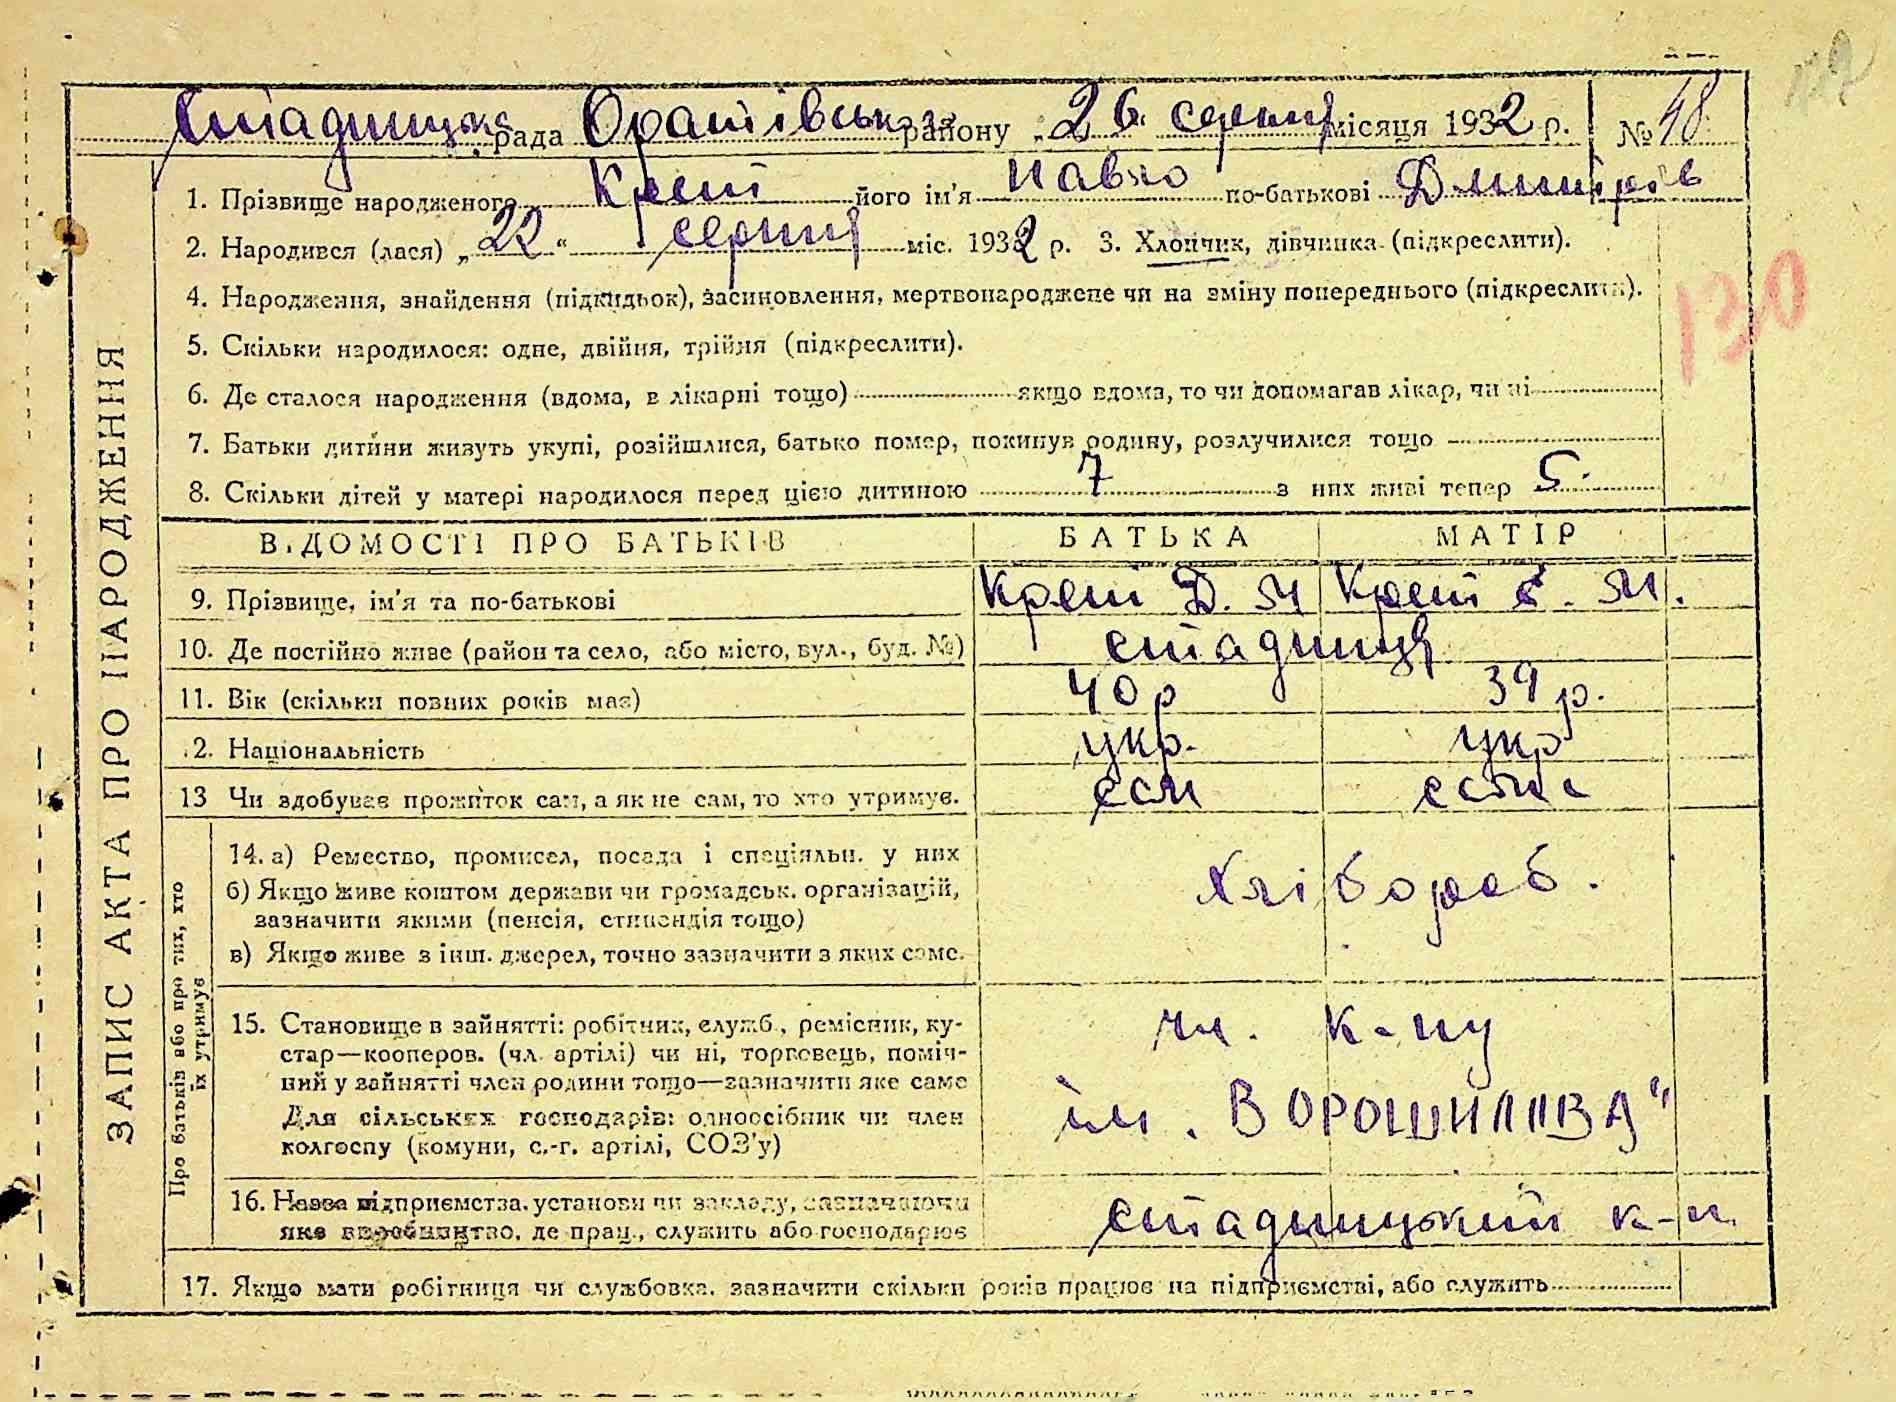 Стадницька рада Оратівського району „26“ серпня місяця 1932 р. № 48
1. Прізвище народженого Креш його ім'я Павло по-батькові Дмитрів
2. Народився (лася) „22“ серпня міс. 1932 р. 3. Хлопчик, дівчинка (підкреслити).
130
4. Народження, знайдення (підкидьок), засиновлення, мертвонароджене чи на зміну попереднього (підкреслити).
5. Скільки народилося: одне, двійня, трійня (підкреслити).
6. Де сталося народження (вдома, в лікарні тощо) якщо вдома, то чи допомагав лікар, чи ні
7. Батьки дитини живуть укупі, розійшлися, батько помер, покинув родину, розлучилися тощо
8. Скільки дітей у матері народилося перед цією дитиною 7 з них живі тепер 5.
ЗАПИС АКТА ПРО НАРОДЖЕННЯ
ВІДОМОСТІ ПРО БАТЬКІВ БАТЬКА МАТІР
9. Прізвище, ім'я та по-батькові Креш Д. М Креш Є. М.
10. Де постійно живе (район та село, або місто, вул., буд. №) Стадниця
11. Вік (скільки повних років має) 40 р 39 р.
12. Національність укр. укр
13 Чи здобуває прожиток сам, а як не сам, то хто утримує. сам сама
Про батьків або про тих, хто
їх утримує
14. а) Ремество, промисел, посада і спеціяльн. у них
б) Якщо живе коштом держави чи громадськ. організацій,
зазначити якими (пенсія, стипендія тощо)
в) Якщо живе з інш. джерел, точно зазначити з яких саме.
Хлібороб.
15. Становище в зайнятті: робітник, служб., ремісник, ку-
стар—кооперов. (чл. артілі) чи ні, торговець, поміч-
ний у зайнятті член родини тощо—зазначити яке саме
Для сільських господарів: одноосібник чи член
колгоспу (комуни, с.-г. артілі, СОЗ'у)
чл. к-пу
ім. ВОРОШИЛОВА"
16. Назва підприємства, установи чи закладу, зазначаючи
яке виробництво, де прац., служить або господарює
Стадницький к-п.
17. Якщо мати робітниця чи службовка, зазначити скільки років працює на підприємстві, або служить